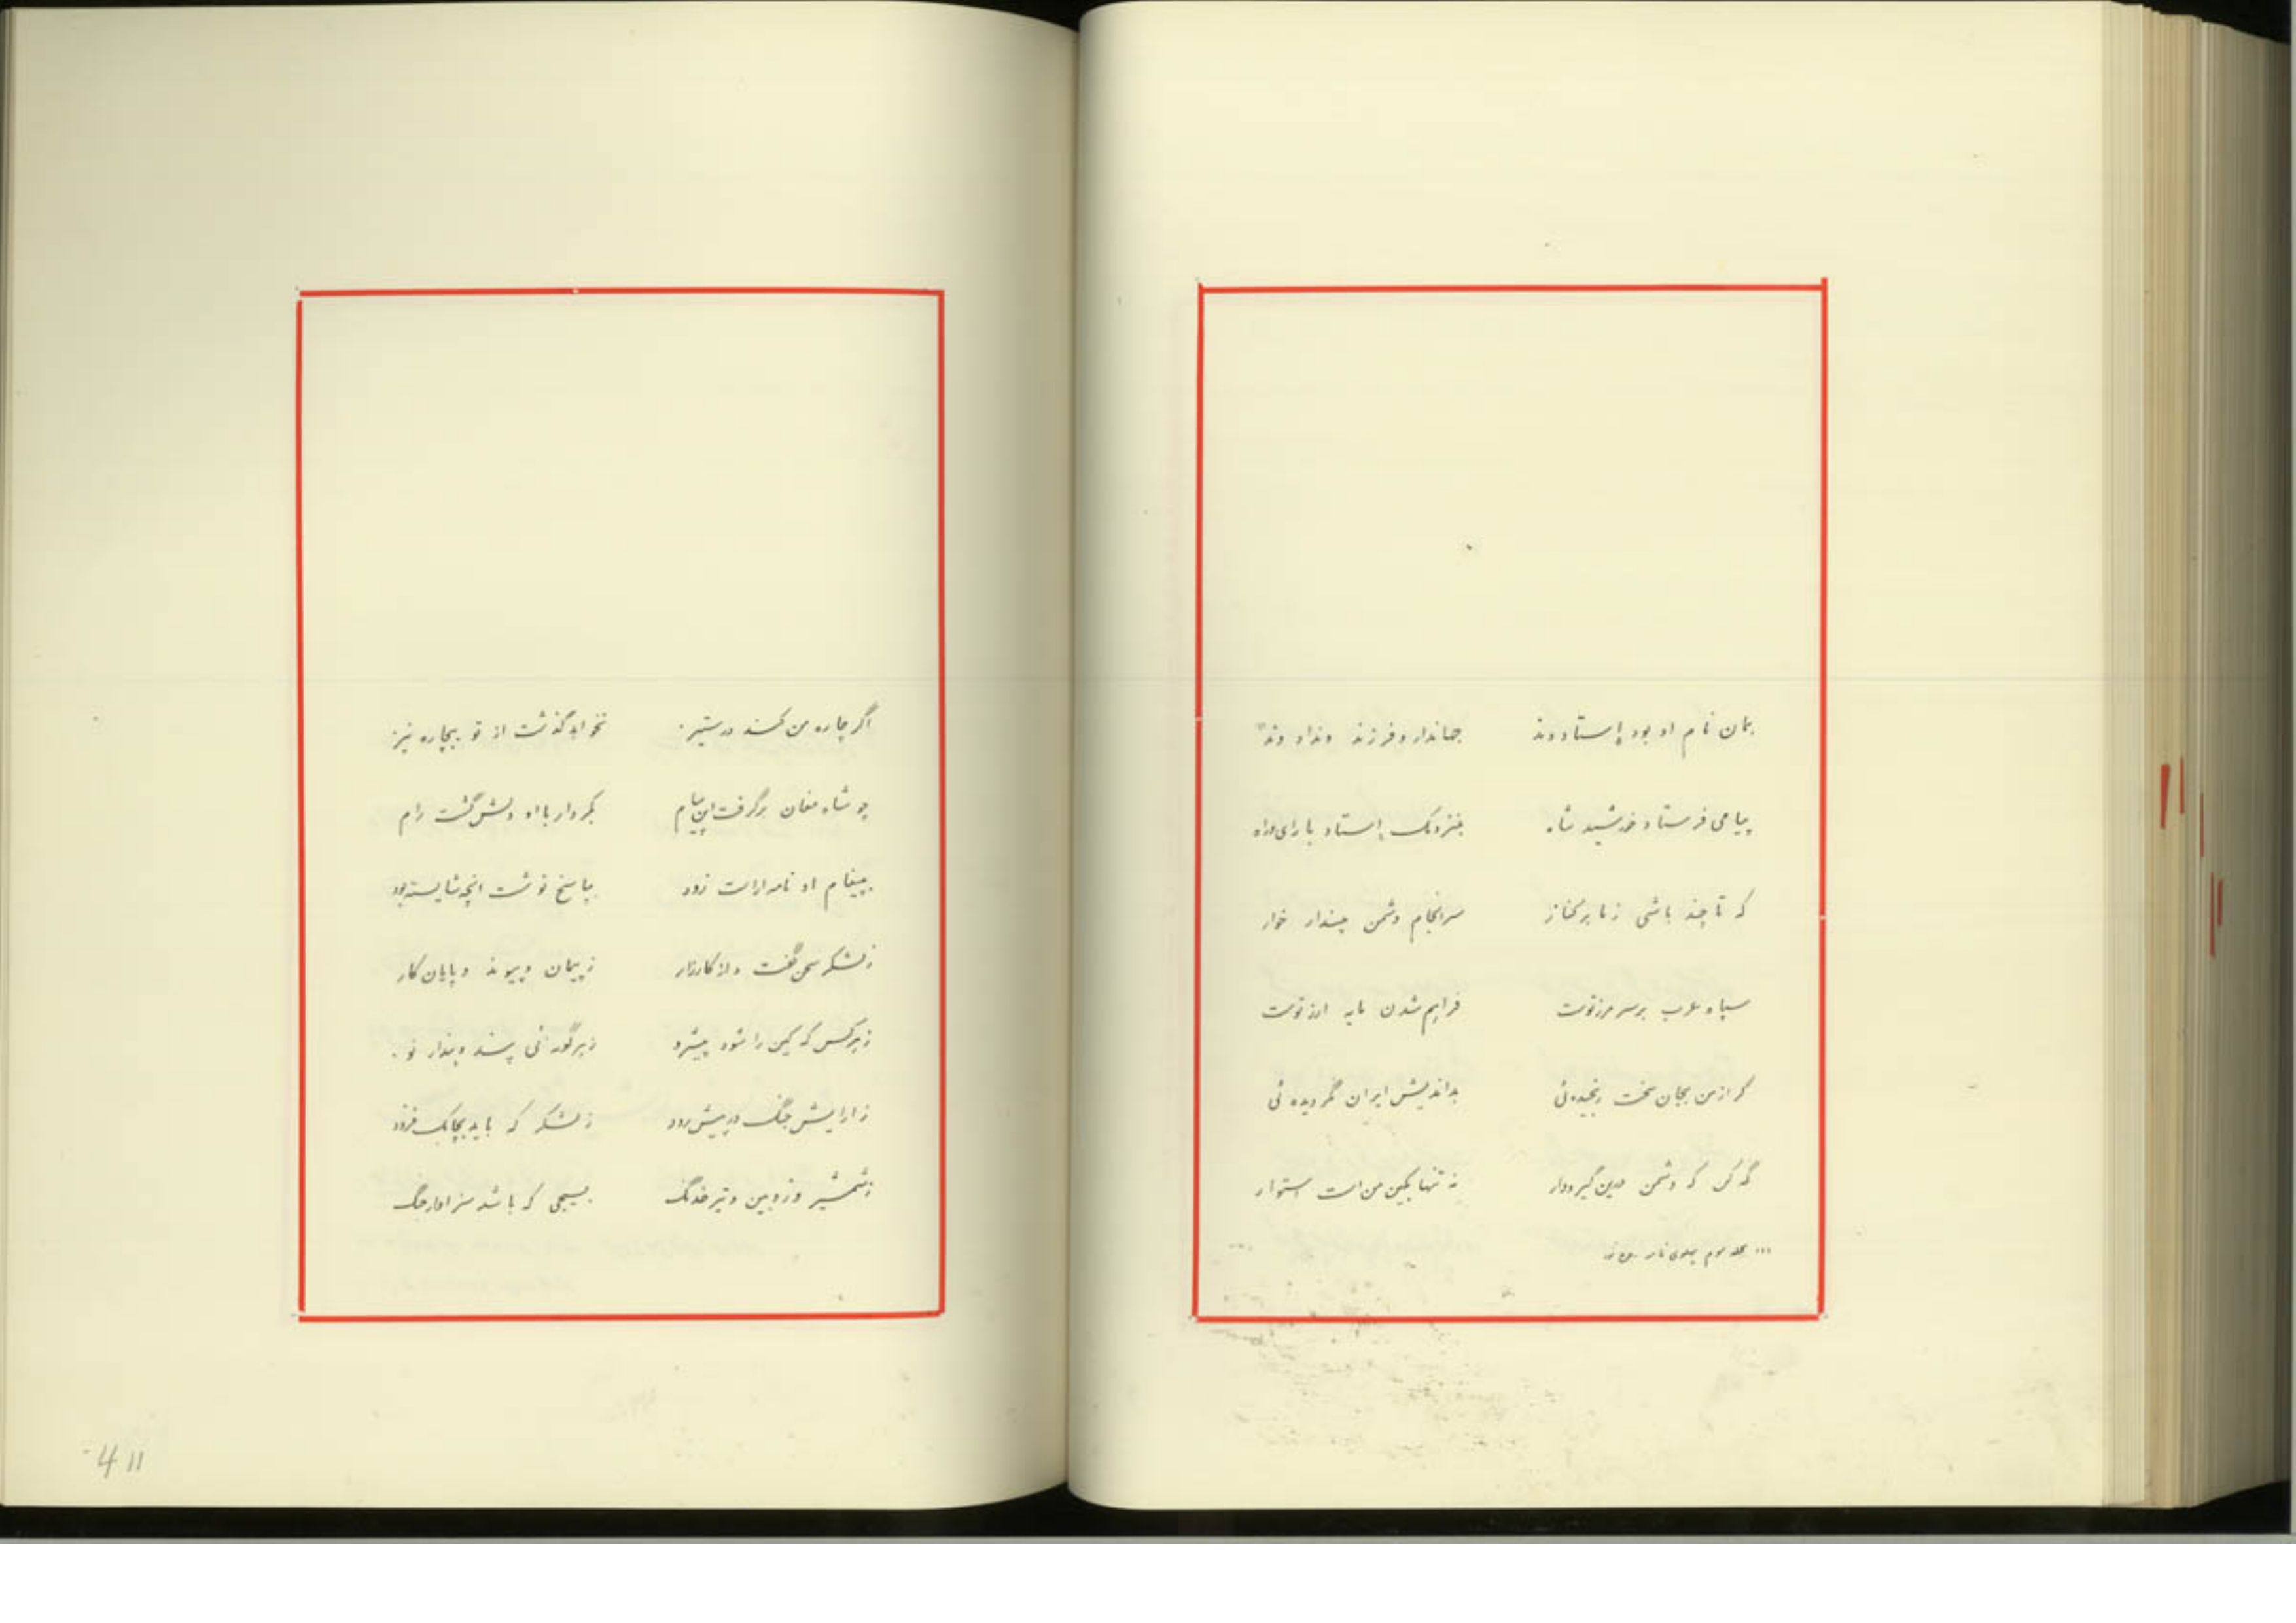 بمان نام او بود استاد وند جهاندار و فرزند ونداد وند
پیامی فرستاد خورشید شاه بنزدیک استاد با رای و راه
که تا چند باشی ز ما بر کنار سرانجام دشمن چندار خوار
سپاه عرب بر سر مرز توست فراهم شدن مایه ارز توست
گر از من بجان سخت رنجیده ئی بداندیش ایران نگردیده ئی
که کس که دشمن درین گیرودار نه تنها بکین من است استوار
... جلد سوم پهلوی نامه
اگر چاره من کند در ستیز نخواهد گذشت از تو بیچاره نیز
چو شاه مغان برگرفت این پیام بکردار با او دلش گشت رام
بپیغام او نامه اراست زود بپاسخ نوشت انچه شایسته بود
ز لشکر سخن گفت و از کارزار ز پیمان و پیوند و پایان کار
ز هر کس که کین را شود پیشرو ز هر گونه ئی پند و پندار نو
ز ارایش جنگ در پیش رود ز لشکر که باید بچابک فزود
ز شمشیر و زوبین و تیر خدنگ بسیجی که باشد سزاوار جنگ
411